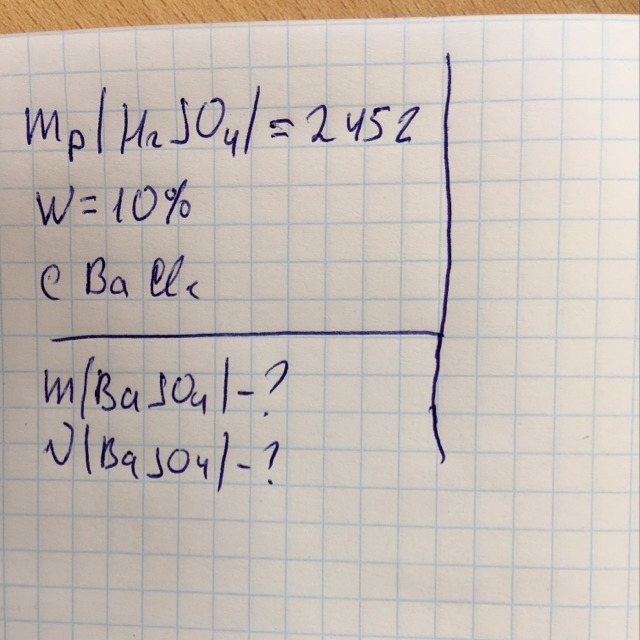 mр(H₂SO₄)=245г
W=10%
с BaCl₂
m(BaSO₄)-?
ν(BaSO₄)-?